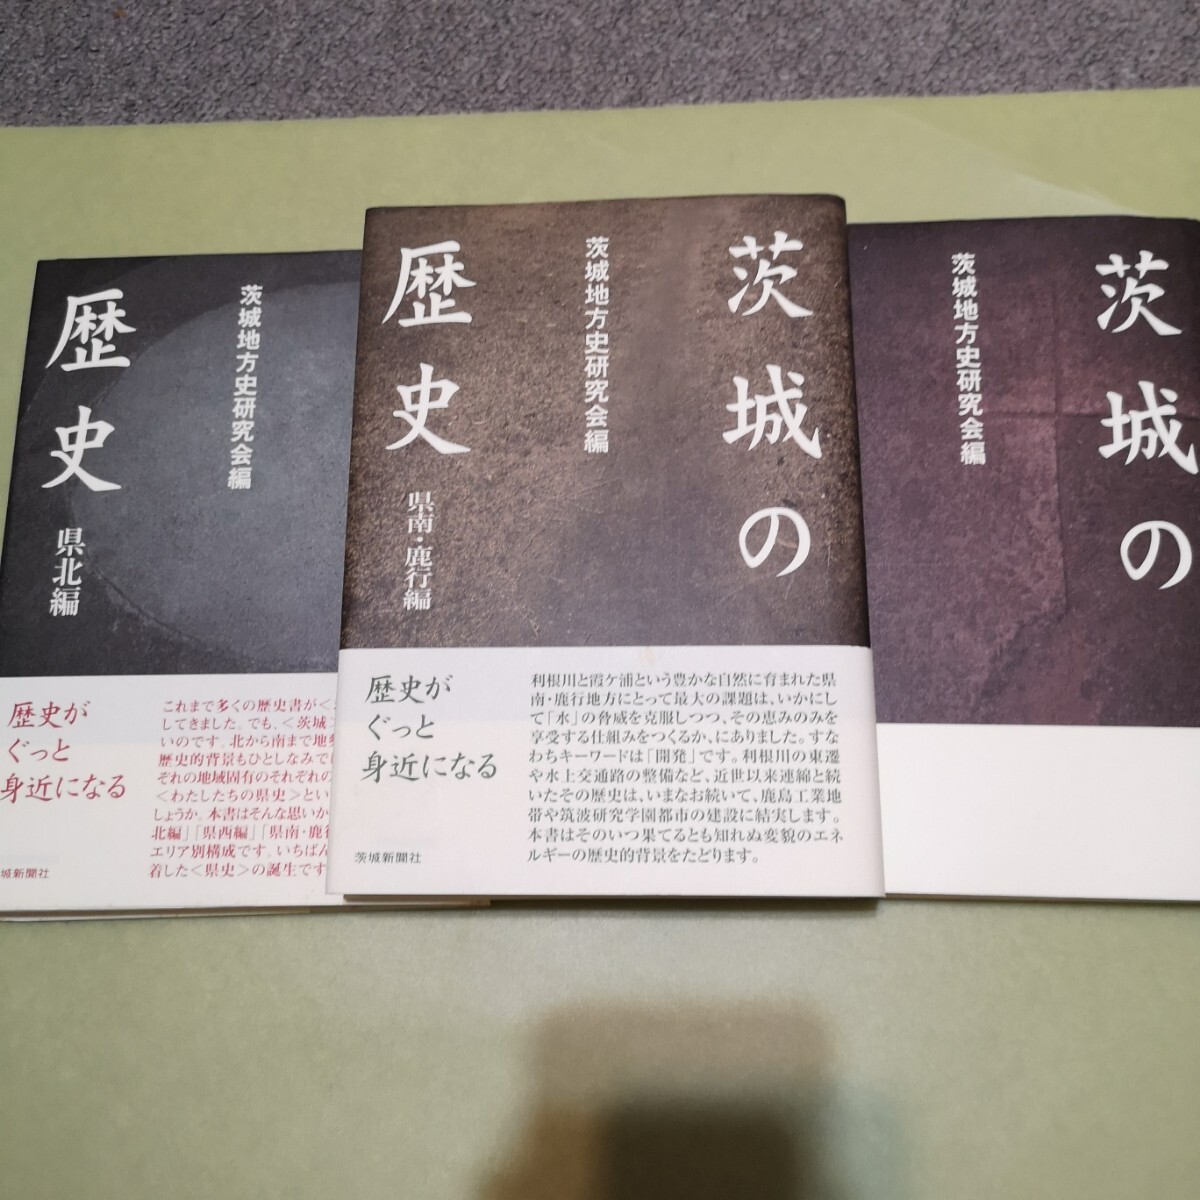 歴史
県北編
茨城地方史研究会編
歴史が
ぐっと
身近になる
これまで多くの歴史書が<
してきました。でも、<茨城>
いのです。北から南まで地勢
歴史的背景もひとしなみで
ぞれの地域固有のそれぞれの
<わたしたちの県史>とい
しょうか。本書はそんな思いか
北編」「県西編」「県南・鹿行
エリア別構成です。いちばん
着した<県史>の誕生です
城新聞社
茨城の
歴史
県南・鹿行編
茨城地方史研究会編
歴史が
ぐっと
身近になる
利根川と霞ケ浦という豊かな自然に育まれた県
南・鹿行地方にとって最大の課題は、いかにし
て「水」の脅威を克服しつつ、その恵みのみを
享受する仕組みをつくるか、にありました。すな
わちキーワードは「開発」です。利根川の東遷
や水上交通路の整備など、近世以来連綿と続
いたその歴史は、いまなお続いて、鹿島工業地
帯や筑波研究学園都市の建設に結実します。
本書はそのいつ果てるとも知れぬ変貌のエネ
ルギーの歴史的背景をたどります。
茨城新聞社
茨城の
茨城地方史研究会編